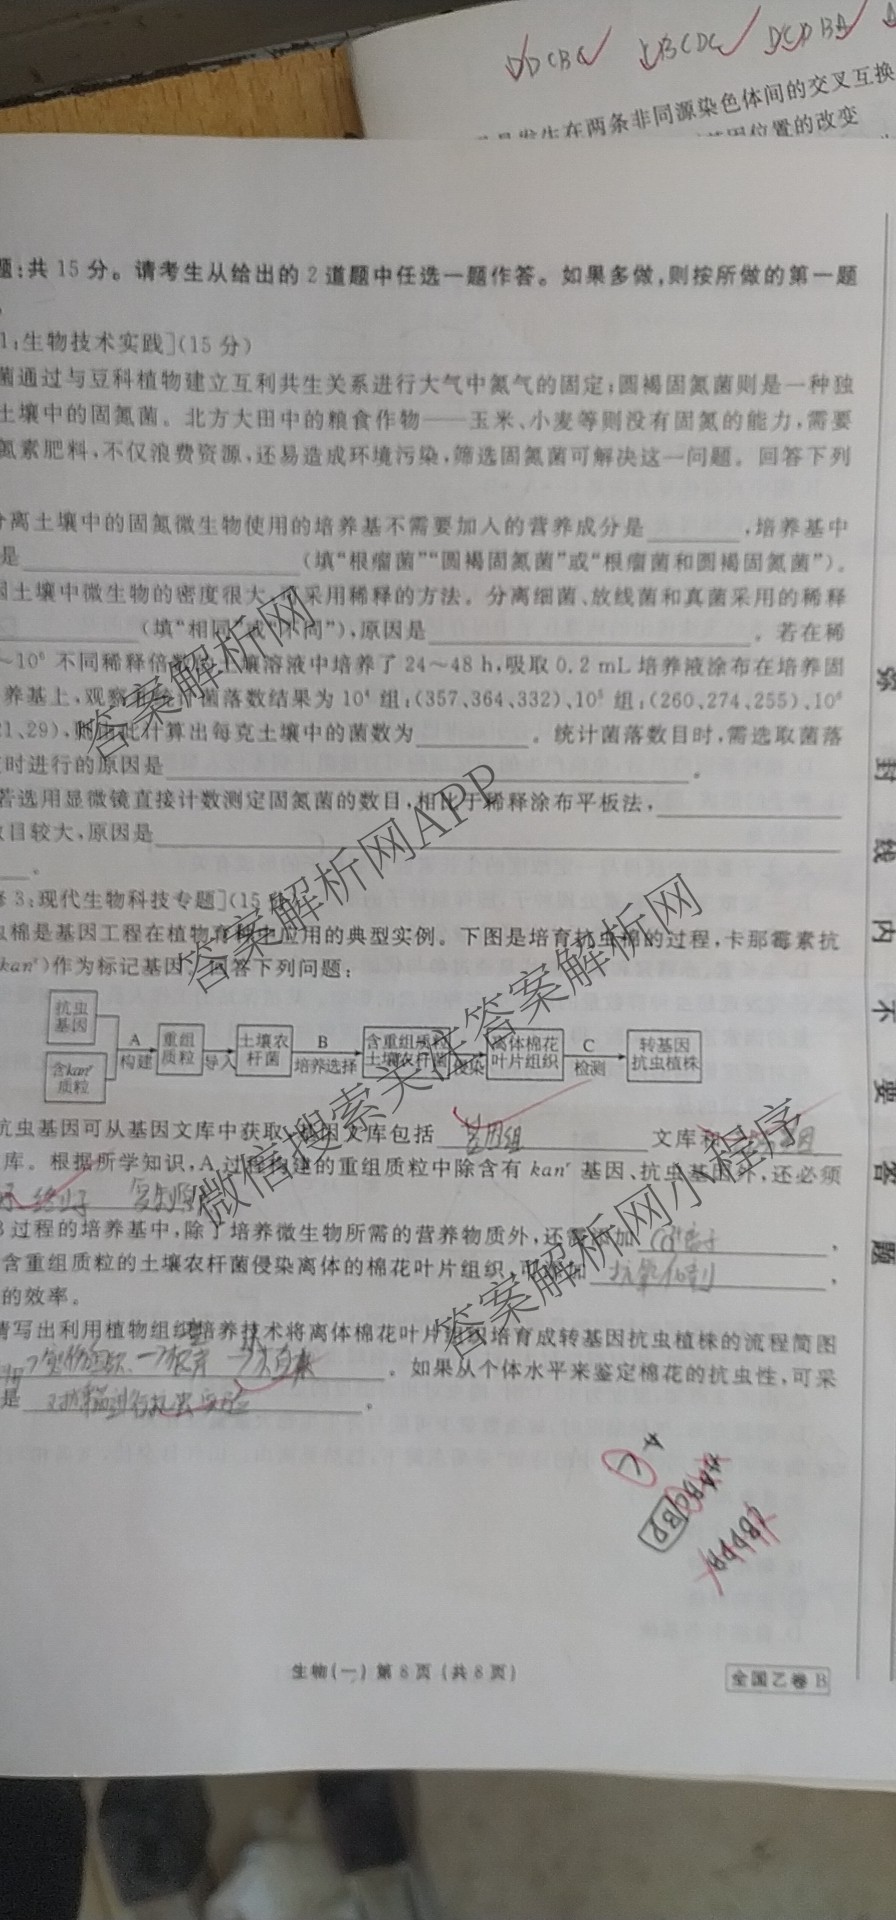 DDCBC CBCDC DCDBA
发生在两条非同源染色体间的交叉互换
基因位置的改变
题:共15分。请考生从给出的2道题中任选一题作答。如果多做,则按所做的第一题
1:生物技术实践](15分)
菌通过与豆科植物建立互利共生关系进行大气中氮气的固定;圆褐固氮菌则是一种独
土壤中的固氮菌。北方大田中的粮食作物——玉米、小麦等则没有固氮的能力,需要
氮素肥料,不仅浪费资源,还易造成环境污染,筛选固氮菌可解决这一问题。回答下列
分离土壤中的固氮微生物使用的培养基不需要加入的营养成分是________,培养基中
是________(填“根瘤菌”“圆褐固氮菌”或“根瘤菌和圆褐固氮菌”)。
因土壤中微生物的密度很大,可采用稀释的方法。分离细菌、放线菌和真菌采用的稀释
________(填“相同”或“不同”),原因是________。若在稀
~10⁶不同稀释倍数的土壤溶液中培养了24~48 h,吸取0.2 mL培养液涂布在培养固
养基上,观察并统计菌落数结果为10⁴组:(357、364、332)、10⁵组:(260、274、255)、10⁶
21、29),则由此计算出每克土壤中的菌数为________。统计菌落数目时,需选取菌落
时进行的原因是________。
若选用显微镜直接计数测定固氮菌的数目,相比于稀释涂布平板法,________
数目较大,原因是________
________。
修3:现代生物科技专题](15分)
虫棉是基因工程在植物育种中应用的典型实例。下图是培育抗虫棉的过程,卡那霉素抗
kanʳ)作为标记基因。回答下列问题:
抗虫基因
含kanʳ质粒
A 构建
重组质粒
导入
土壤农杆菌
B 培养选择
含重组质粒土壤农杆菌
侵染
离体棉花叶片组织
C 检测
转基因抗虫植株
抗虫基因可从基因文库中获取,基因文库包括 基因组 文库和
库。根据所学知识,A过程构建的重组质粒中除含有kanʳ基因、抗虫基因外,还必须
终止子 复制原
B过程的培养基中,除了培养微生物所需的营养物质外,还需添加________,
含重组质粒的土壤农杆菌侵染离体的棉花叶片组织,可添加 抗氧化剂,
的效率。
请写出利用植物组织培养技术将离体棉花叶片组织培育成转基因抗虫植株的流程简图
________。如果从个体水平来鉴定棉花的抗虫性,可采
是 对植株进行抗虫实验。
生物(一) 第8页(共8页)
全国乙卷B
弥封线内不要答题
答案解析网
答案解析网APP
微信搜索关注答案解析网
答案解析网小程序